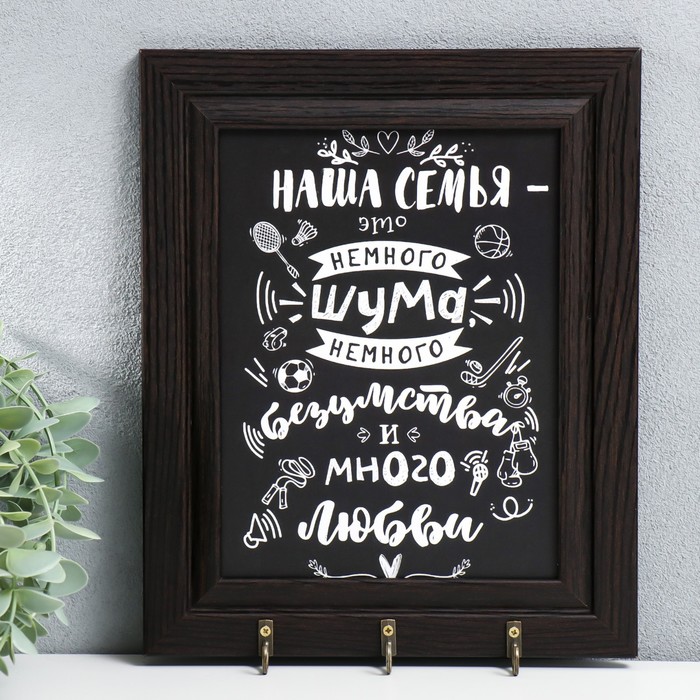 НАША СЕМЬЯ –
это
НЕМНОГО
шума,
НЕМНОГО
безумства
и
МНОГО
любви